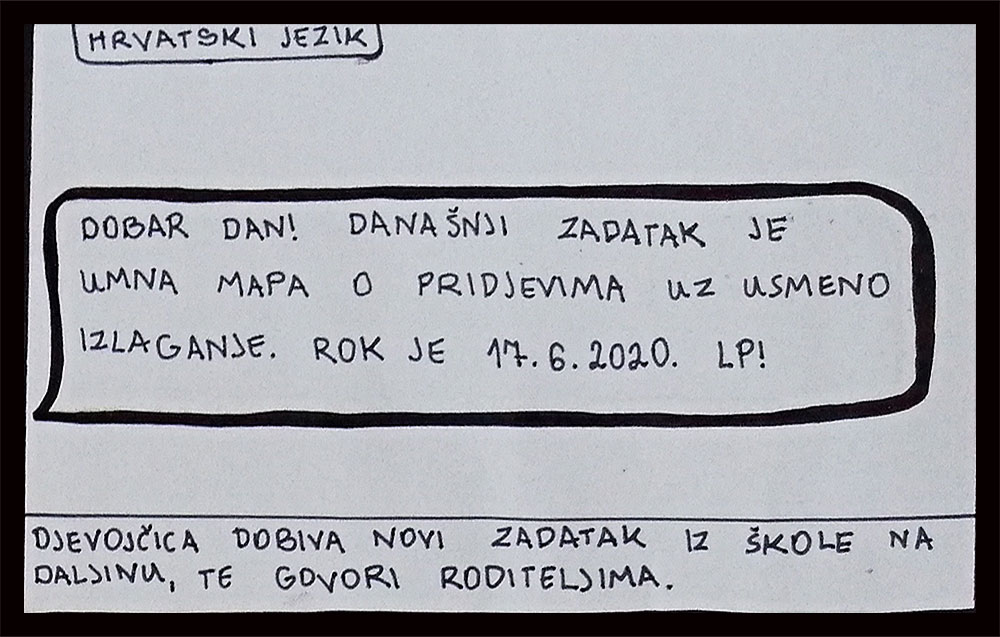 HRVATSKI JEZIK
DOBAR DAN! DANAŠNJI ZADATAK JE
UMNA MAPA O PRIDJEVIMA UZ USMENO
IZLAGANJE. ROK JE 17.6.2020. LP!
DJEVOJČICA DOBIVA NOVI ZADATAK IZ ŠKOLE NA
DALJINU, TE GOVORI RODITELJIMA.